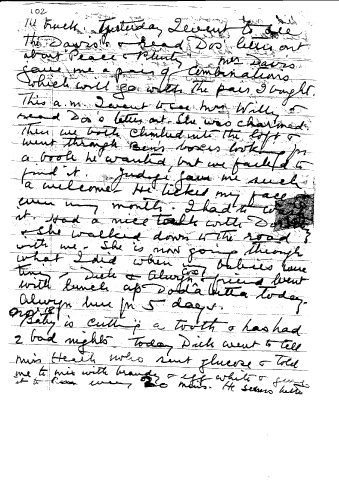 102
truck. Yesterday I went to see
the Davis's & read Do's letters out
about Peace & Plenty. Mrs Davis
gave me a pair of combinations
which will go with the pair I bought.
This a.m. I went to see Mrs Wills, &
read Do's letters out. She was charmed.
Then we both climbed into the loft &
went through Ben's boxes looking for
a book he wanted but we failed to
find it. Judge gave me such
a welcome. He licked my face
even my mouth. I had to
it. Had a nice talk with
& she walked down to the road
with me. She is now going through
what I did when my babies were
tiny. Dick & Alwyn's friend went
with lunch up today.
Alwyn here for 5 days.
Baby is cutting a tooth & has had
2 bad nights. Today Dick went to tell
Miss Heath who sent glucose & told
me to mix with brandy & egg white &
it to him every 20 mins. He seems better